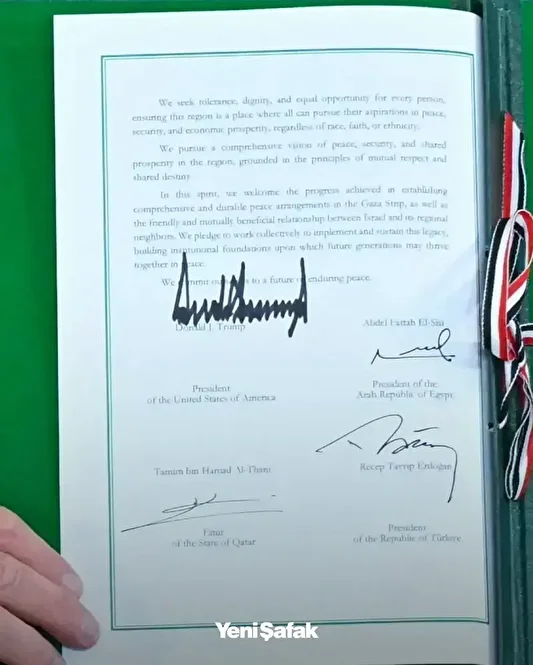 We seek tolerance, dignity, and equal opportunity for every person,
ensuring this region is a place where all can pursue their aspirations in peace,
security, and economic prosperity, regardless of race, faith, or ethnicity.
We pursue a comprehensive vision of peace, security, and shared
prosperity in the region, grounded in the principles of mutual respect and
shared destiny.
In this spirit, we welcome the progress achieved in establishing
comprehensive and durable peace arrangements in the Gaza Strip, as well as
the friendly and mutually beneficial relationship between Israel and its regional
neighbors. We pledge to work collectively to implement and sustain this legacy,
building institutional foundations upon which future generations may thrive
together in peace.
We commit to a future of enduring peace.
Donald J. Trump
Abdel Fattah El-Sisi
President
of the United States of America
President of the
Arab Republic of Egypt
Tamim bin Hamad Al-Thani
Recep Tayyip Erdoğan
Emir
of the State of Qatar
President
of the Republic of Türkiye
YENİŞAFAK